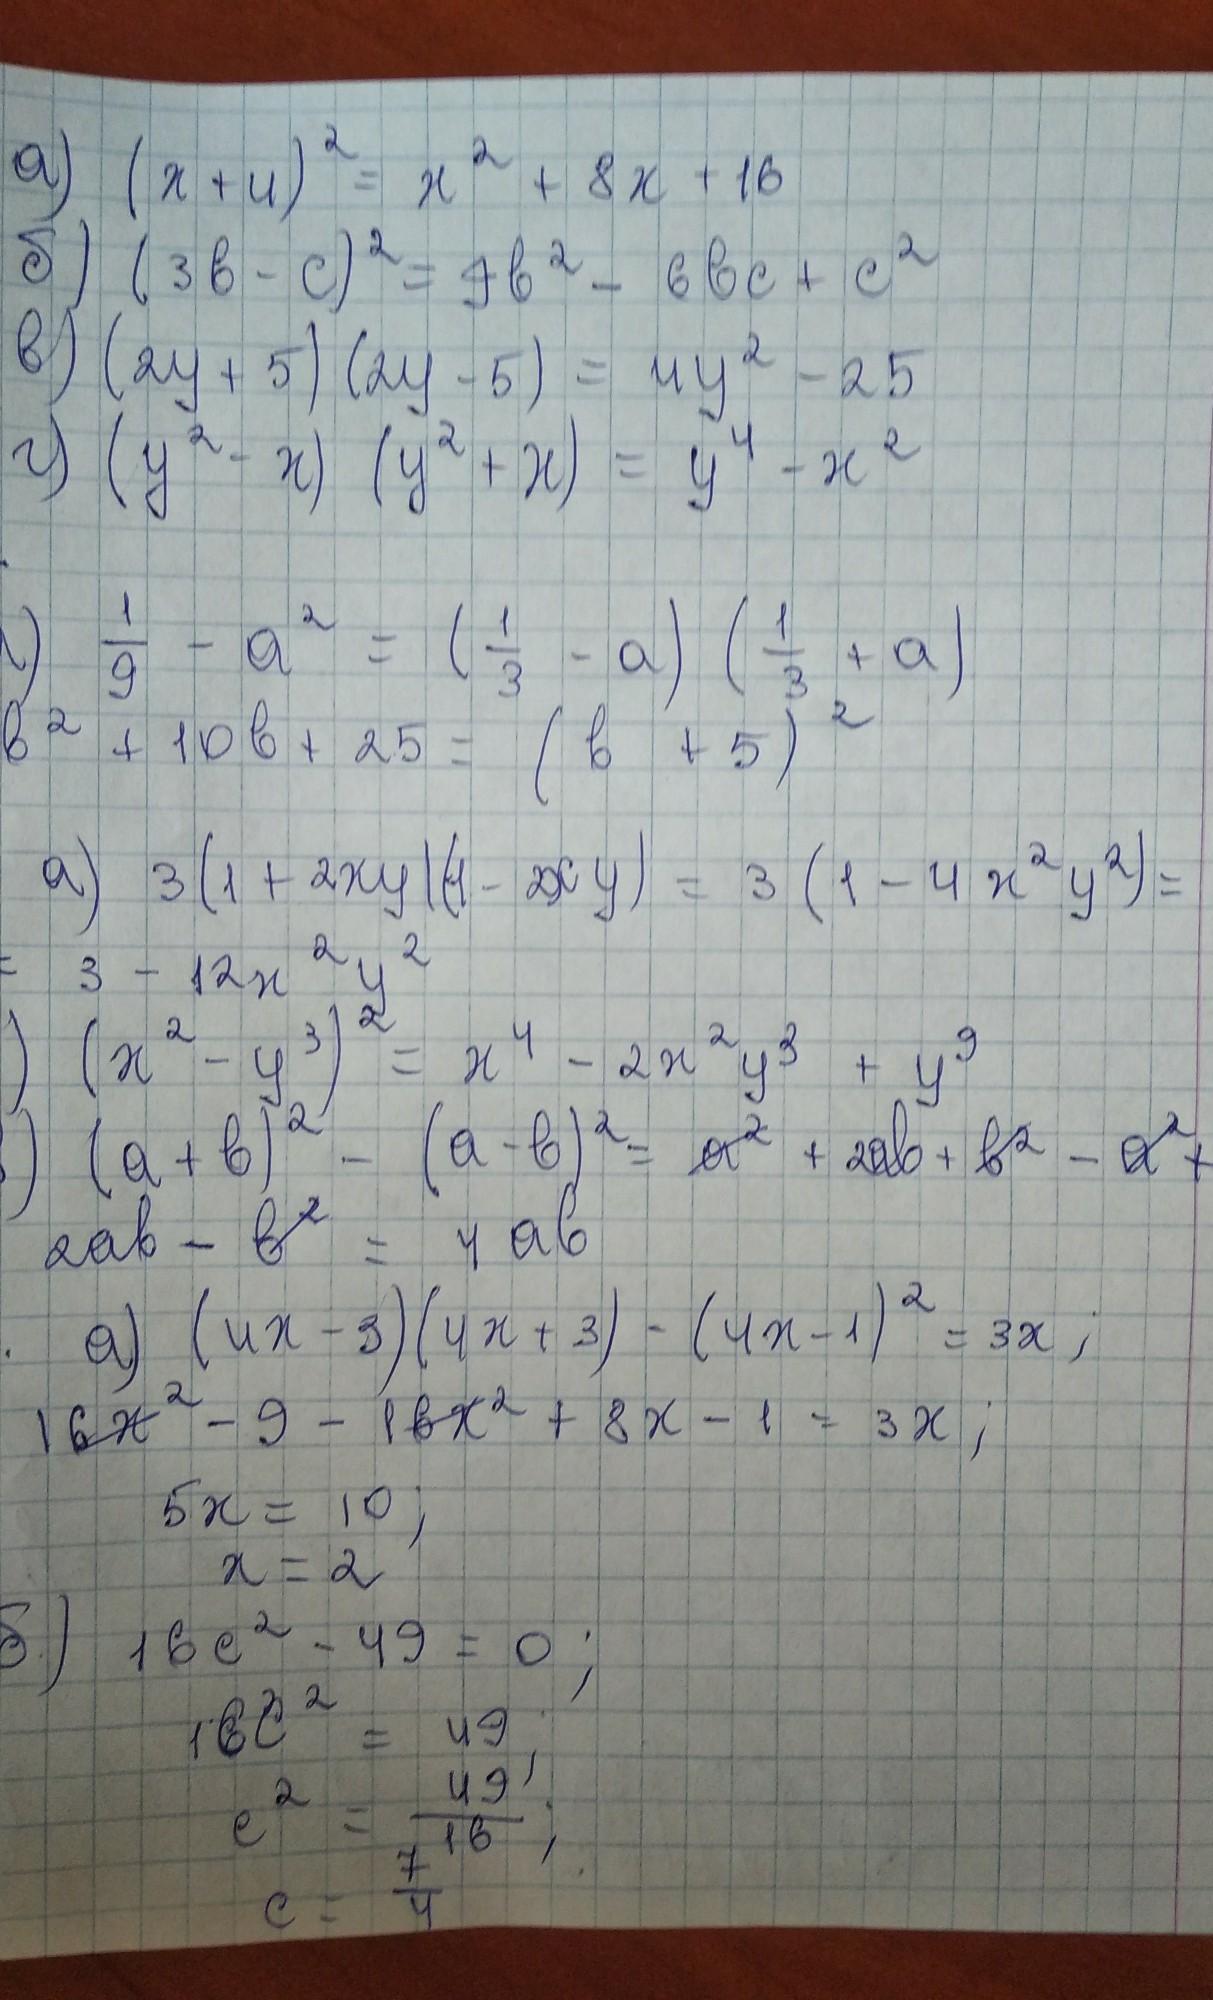 а) (x+4)² = x² + 8x + 16
б) (3b - c)² = 9b² - 6bc + c²
в) (2y + 5) (2y - 5) = 4y² - 25
г) (y² - x) (y² + x) = y⁴ - x²
) 1/9 - a² = (1/3 - a) (1/3 + a)
b² + 10b + 25 = (b + 5)²
а) 3(1 + 2xy)(1 - 2xy) = 3 (1 - 4x²y²) =
= 3 - 12x²y²
) (x² - y³)² = x⁴ - 2x²y³ + y⁹
) (a + b)² - (a - b)² = a² + 2ab + b² - a² +
2ab - b² = 4ab
. а) (4x - 3)(4x + 3) - (4x - 1)² = 3x;
16x² - 9 - 16x² + 8x - 1 = 3x;
5x = 10;
x = 2
б) 16c² - 49 = 0;
16c² = 49;
c² = 49/16;
c = 7/4